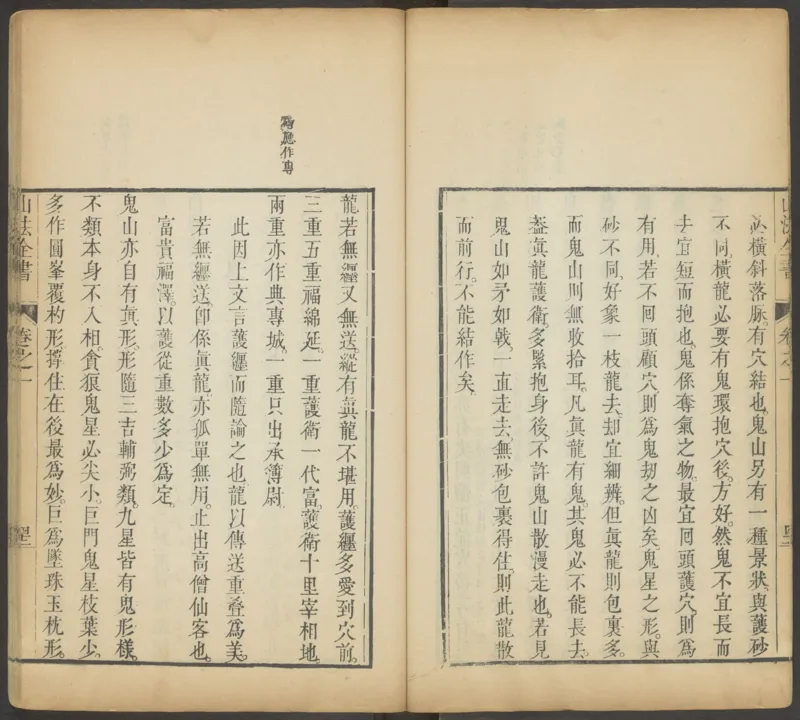 必橫斜落脉。有穴結也。鬼山另有一種景狀。與護砂
不同。橫龍必要有鬼環抱穴後。方好。然鬼不宜長而
去。宜短而抱也。鬼係奪氣之物。最宜囘頭護穴。則爲
有用。若不囘頭顧穴。則爲鬼刼之凶矣。鬼星之形。與
砂不同。好象一枝龍去。却宜細辨。但眞龍則包裹多。
而鬼山則無收拾耳。凡眞龍有鬼。其鬼必不能長去。
葢眞龍護衛。多緊抱身後。不許鬼山散漫走也。若見
鬼山如矛如戟。一直走去。無砂包裹得住。則此龍散
而前行。不能結作矣。
山法全書
卷之一
龍若無纒又無送。縱有眞龍不堪用。護纒多愛到穴前。
三重五重福綿延。一重護衛一代富。護衛十里宰相地。
兩重亦作典專城。一重只出丞簿尉。
應作專
此因上文言護纒而隨論之也。龍以傳送重疊爲美。
若無纒送。卽係眞龍。亦孤單無用。止出高僧仙客也。
富貴福澤。以護從重數多少爲定。
鬼山亦自有眞形。形隨三吉輔弼類。九星皆有鬼形樣。
不類本身不入相。貪狼鬼星必尖小。巨門鬼星枝葉少。
多作圓峯覆杓形。撐住在後最爲妙。巨爲墜珠玉枕形。
山法全書
卷之一